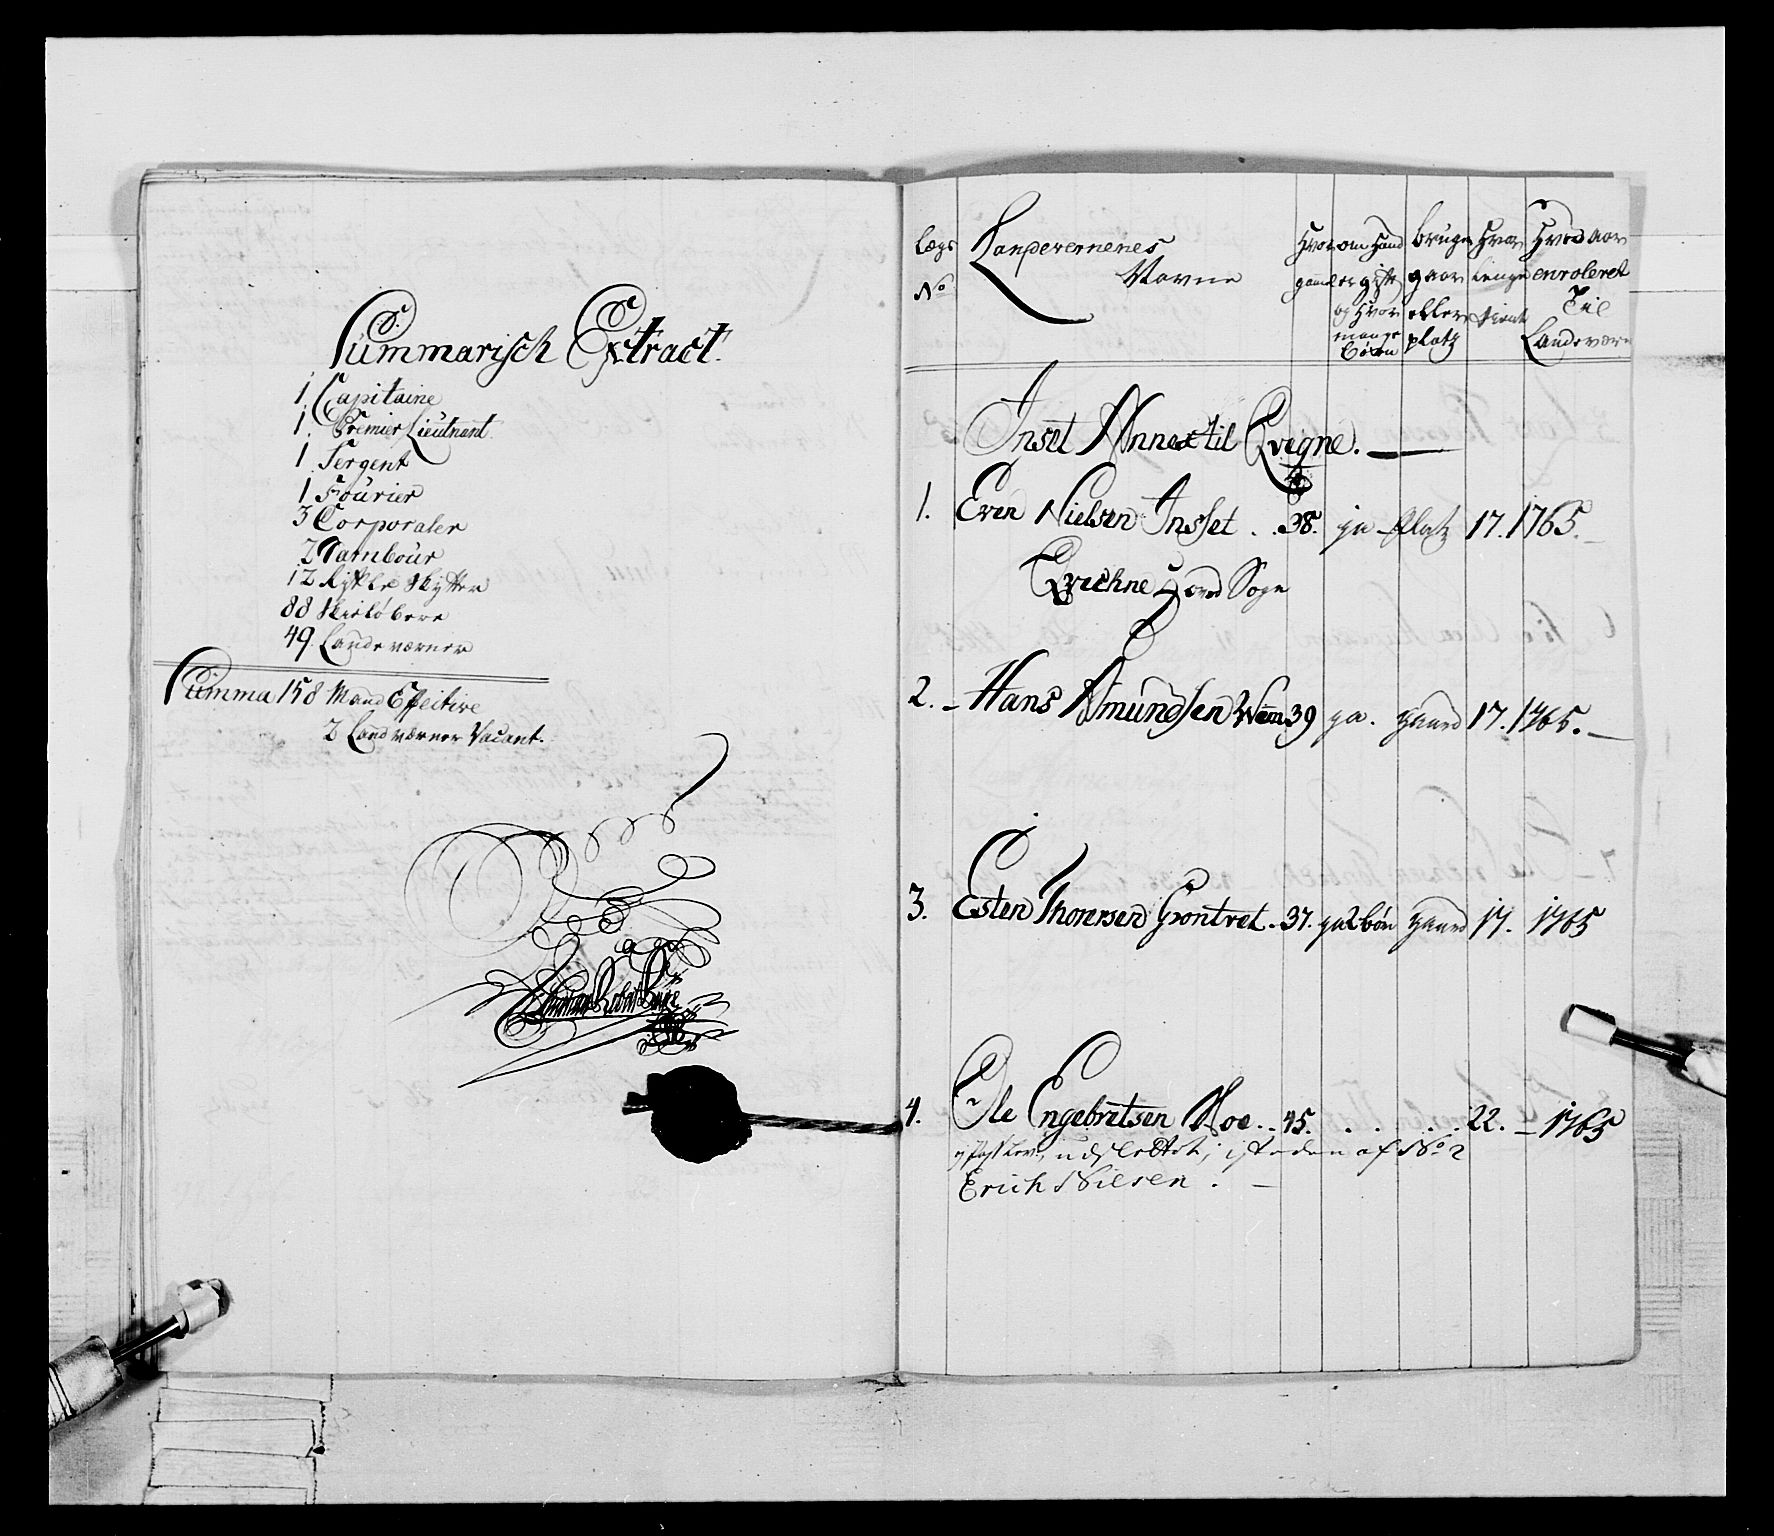 Summarisch Extract.
1. Capitaine
1. Premier Lieutnant
1 Sergent
1 Fourier
3 Corporaler
2 Tambour
12 Rykte Skytter
88 Skiløbere
49. Landeværner
Summa 158 Mand Effective
2 Landværner Vacant.
Lægs No
Landeværnenes Navne
Hvor gammel
om Hand er gift og Hvor mange Børn
bruger gaar eller platz
Hvor lenge tient
Hvad aar enroleret Til Landeværn
Inset Annex til Qvigne.
1. Even Nielsen Insset . . 38. ja Platz 17. 1765.
Qviehne Hoved Sogn
2. Hans Amundsen 39 ja. gaard 17. 1765.
3. Esten Thoresen Grontvet. 37. ja 2 børn gaard 17. 1765
4. Ole Engebretsen Moe . . 45. . . . . . 22. 1765
udslettet, i steden af No 2
Erich Nilsen.